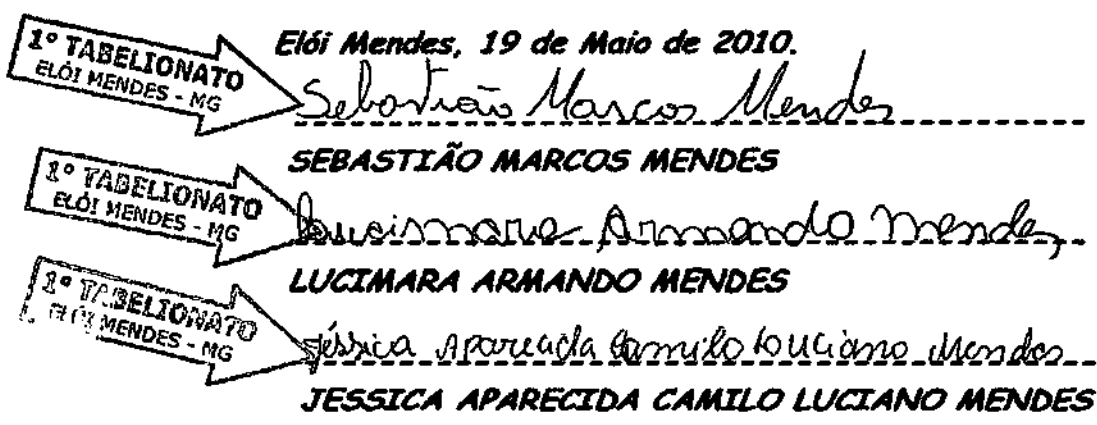 1º TABELIONATO
ELÓI MENDES - MG
Elói Mendes, 19 de Maio de 2010.
Sebastião Marcos Mendes
SEBASTIÃO MARCOS MENDES
1º TABELIONATO
ELÓI MENDES - MG
Lucismara Armando Mendes
LUCIMARA ARMANDO MENDES
1º TABELIONATO
ELÓI MENDES - MG
Jéssica Aparecida Camilo Luciano Mendes
JESSICA APARECIDA CAMILO LUCIANO MENDES